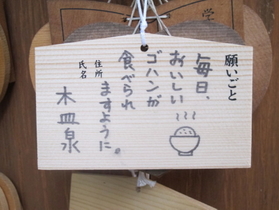 願いごと
毎日、
おいしい
ゴハンが
食べられ
ますように。
住所
氏名
木皿泉
学